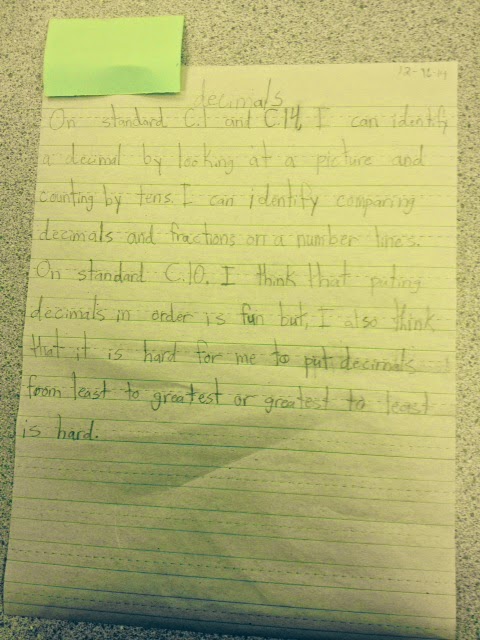 decimals
On standard C.1 and C.14, I can identify
a decimal by looking at a picture and
counting by tens. I can identify comparing
decimals and fractions on a number line's.
On standard C.10. I think that puting
decimal's in order is fun but, I also think
that it is hard for me to put decimals
from least to greatest or greatest to least
is hard.